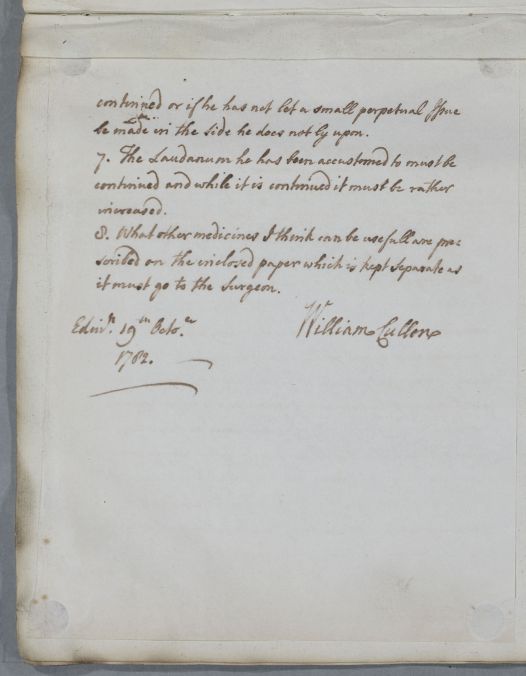 continued or if he has not let a small perpetual Issue
be made in the side he does not ly upon.
7. The Laudanum he has been accustomed to must be
continued and while it is continued it must be rather
increased.
8. What other medicines I think can be usefull are pre=
scribed on the inclosed paper which is kept separate as
it must go to the Surgeon.
Edinr. 19th Octo.r William Cullen
1782.